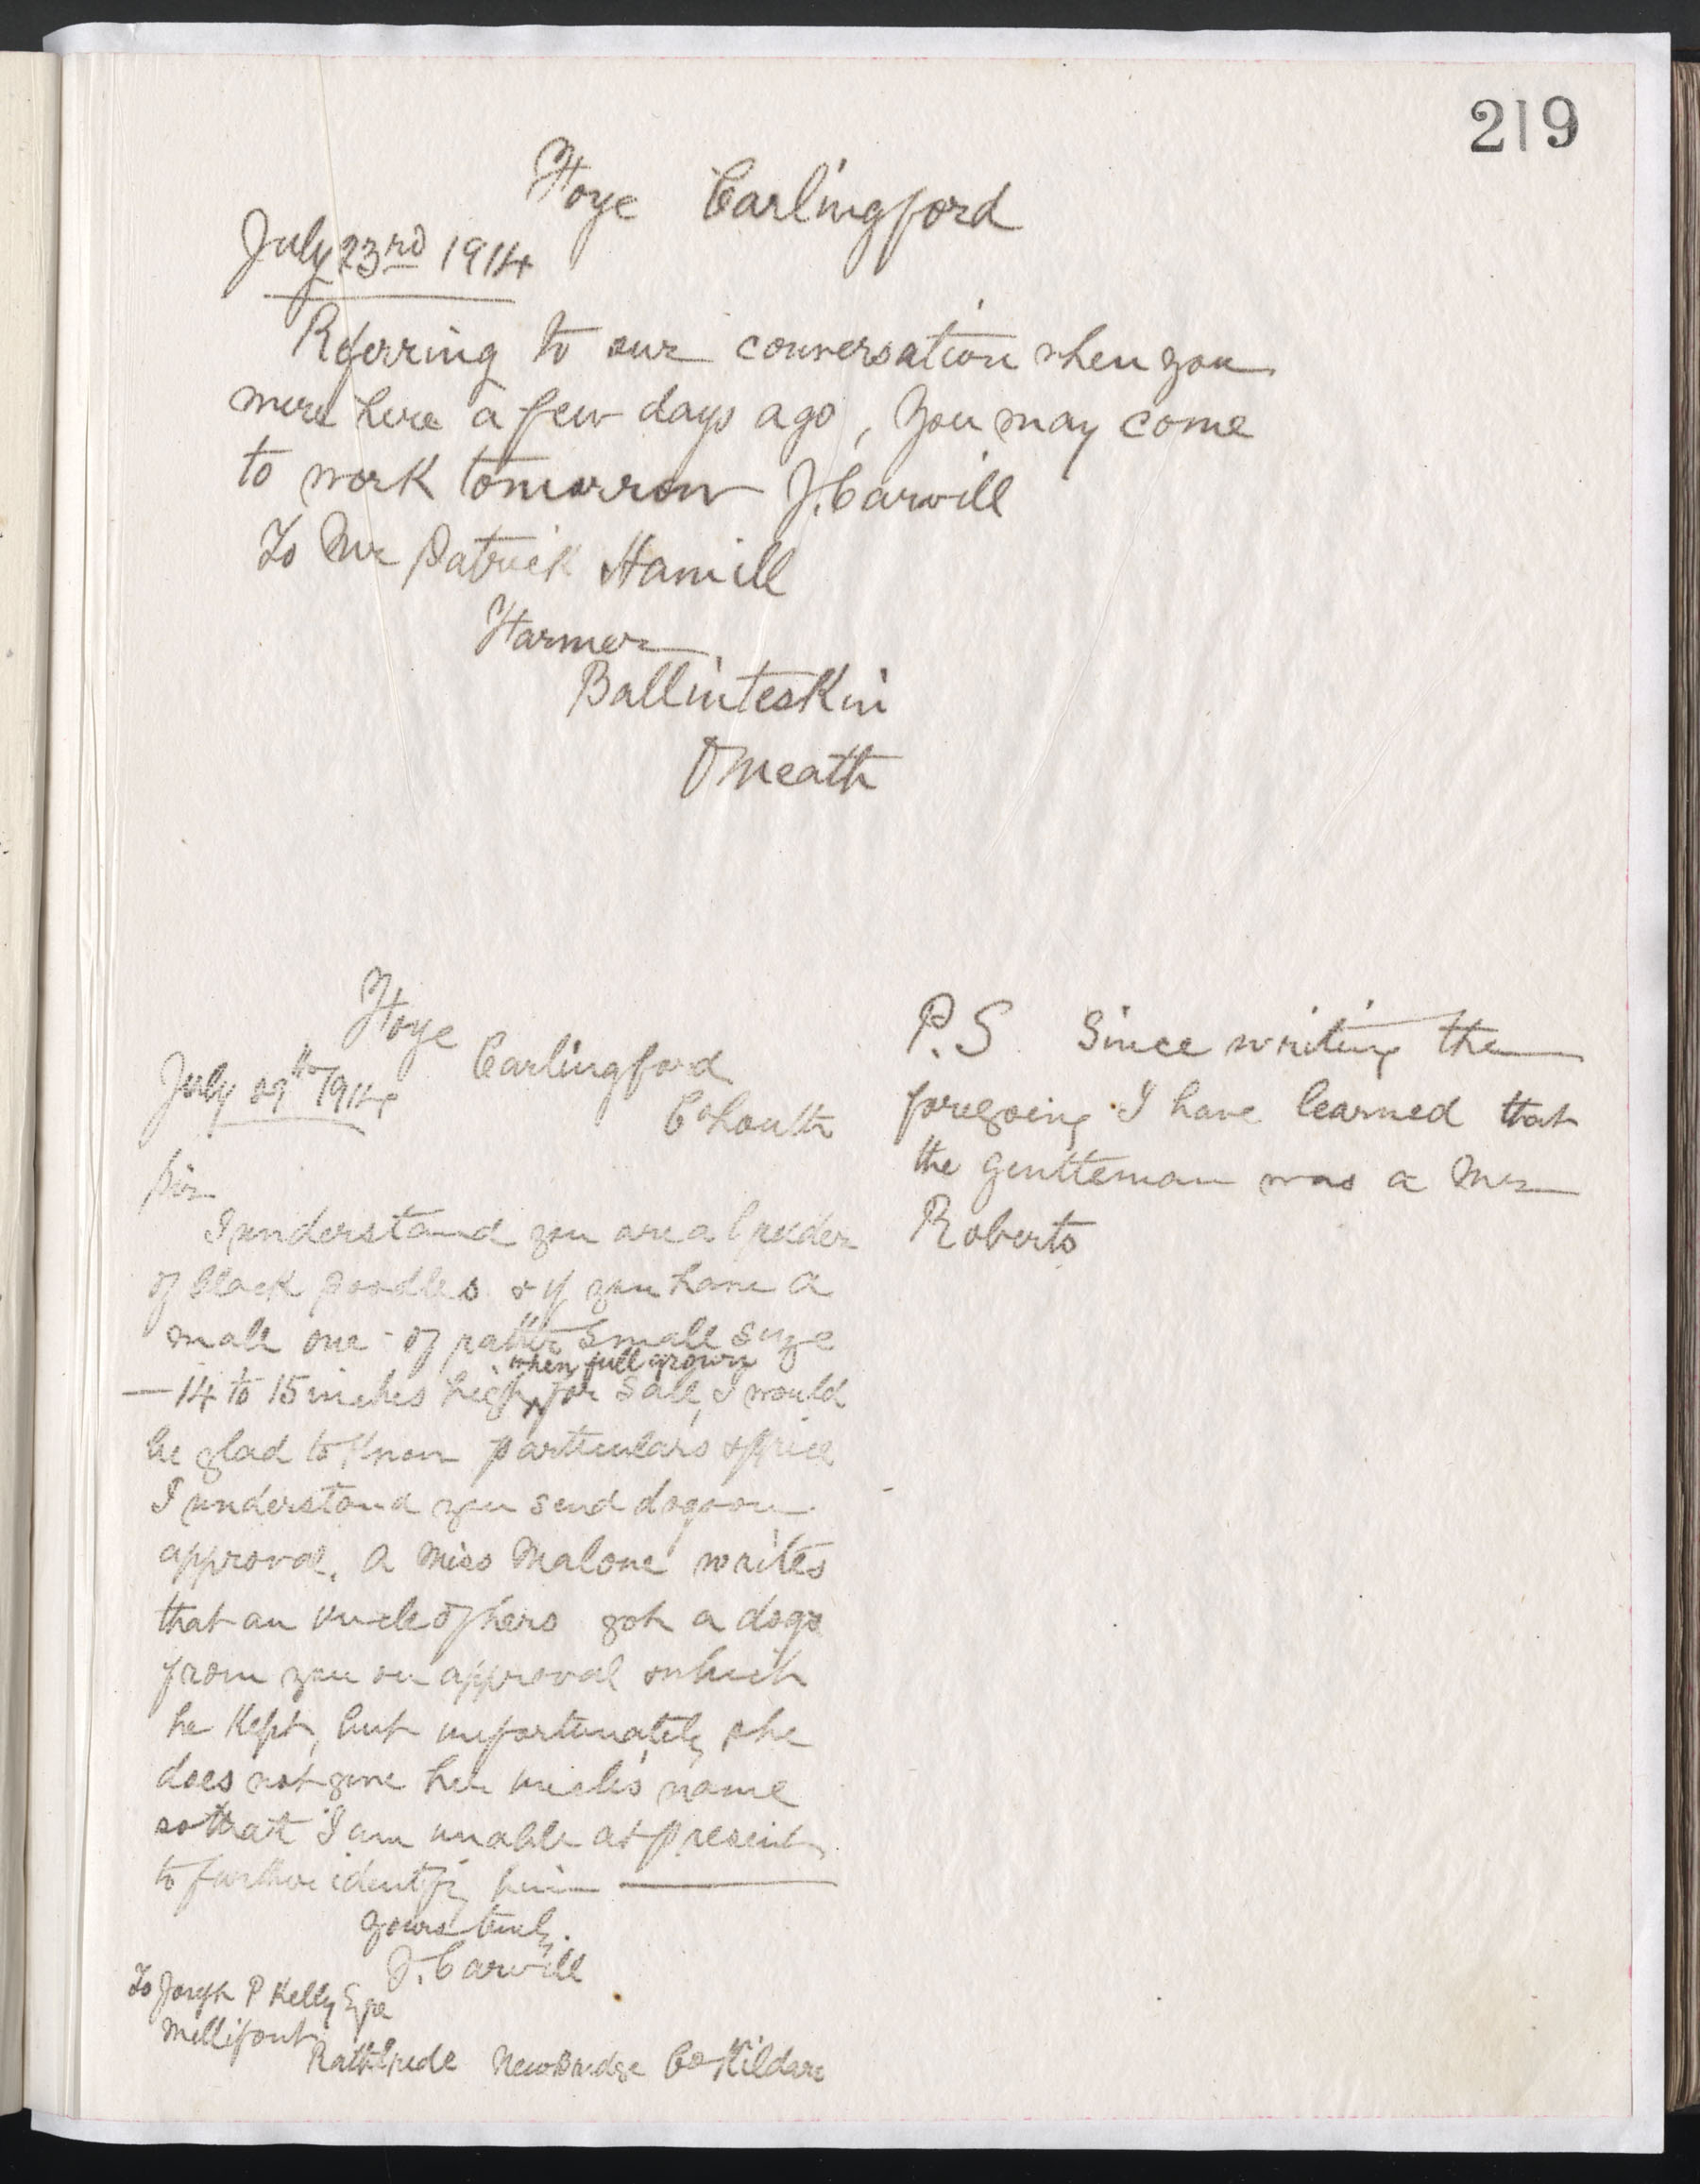 219
Foye Carlingford
July 23rd 1914
Referring to our conversation when you
were here a few days ago, you may come
to work tomorrow J. Carvill
To Mr Patrick Hamill
Farmer
Ballinteskin
Omeath
Foye
Carlingford
July 29th 1914
Co Louth
Sir
I understand you are a breeder
of black poodles & if you have a
male one - of rather small size
when full grown
— 14 to 15 inches high for sale, I would
be glad to know particulars & price
I understand you send dogs on
approval. A Miss Malone writes
that an uncle of hers got a dog
from you on approval which
he kept, but unfortunately she
does not give her uncle's name
so that I am unable at present
to further identify him —
yours truly.
J. Carvill
To Joseph P Kelly Esqre
Mellifont
Rathbride NewBridge Co Kildare
P.S Since writing the
foregoing I have learned that
the gentleman was a Mr
Roberts